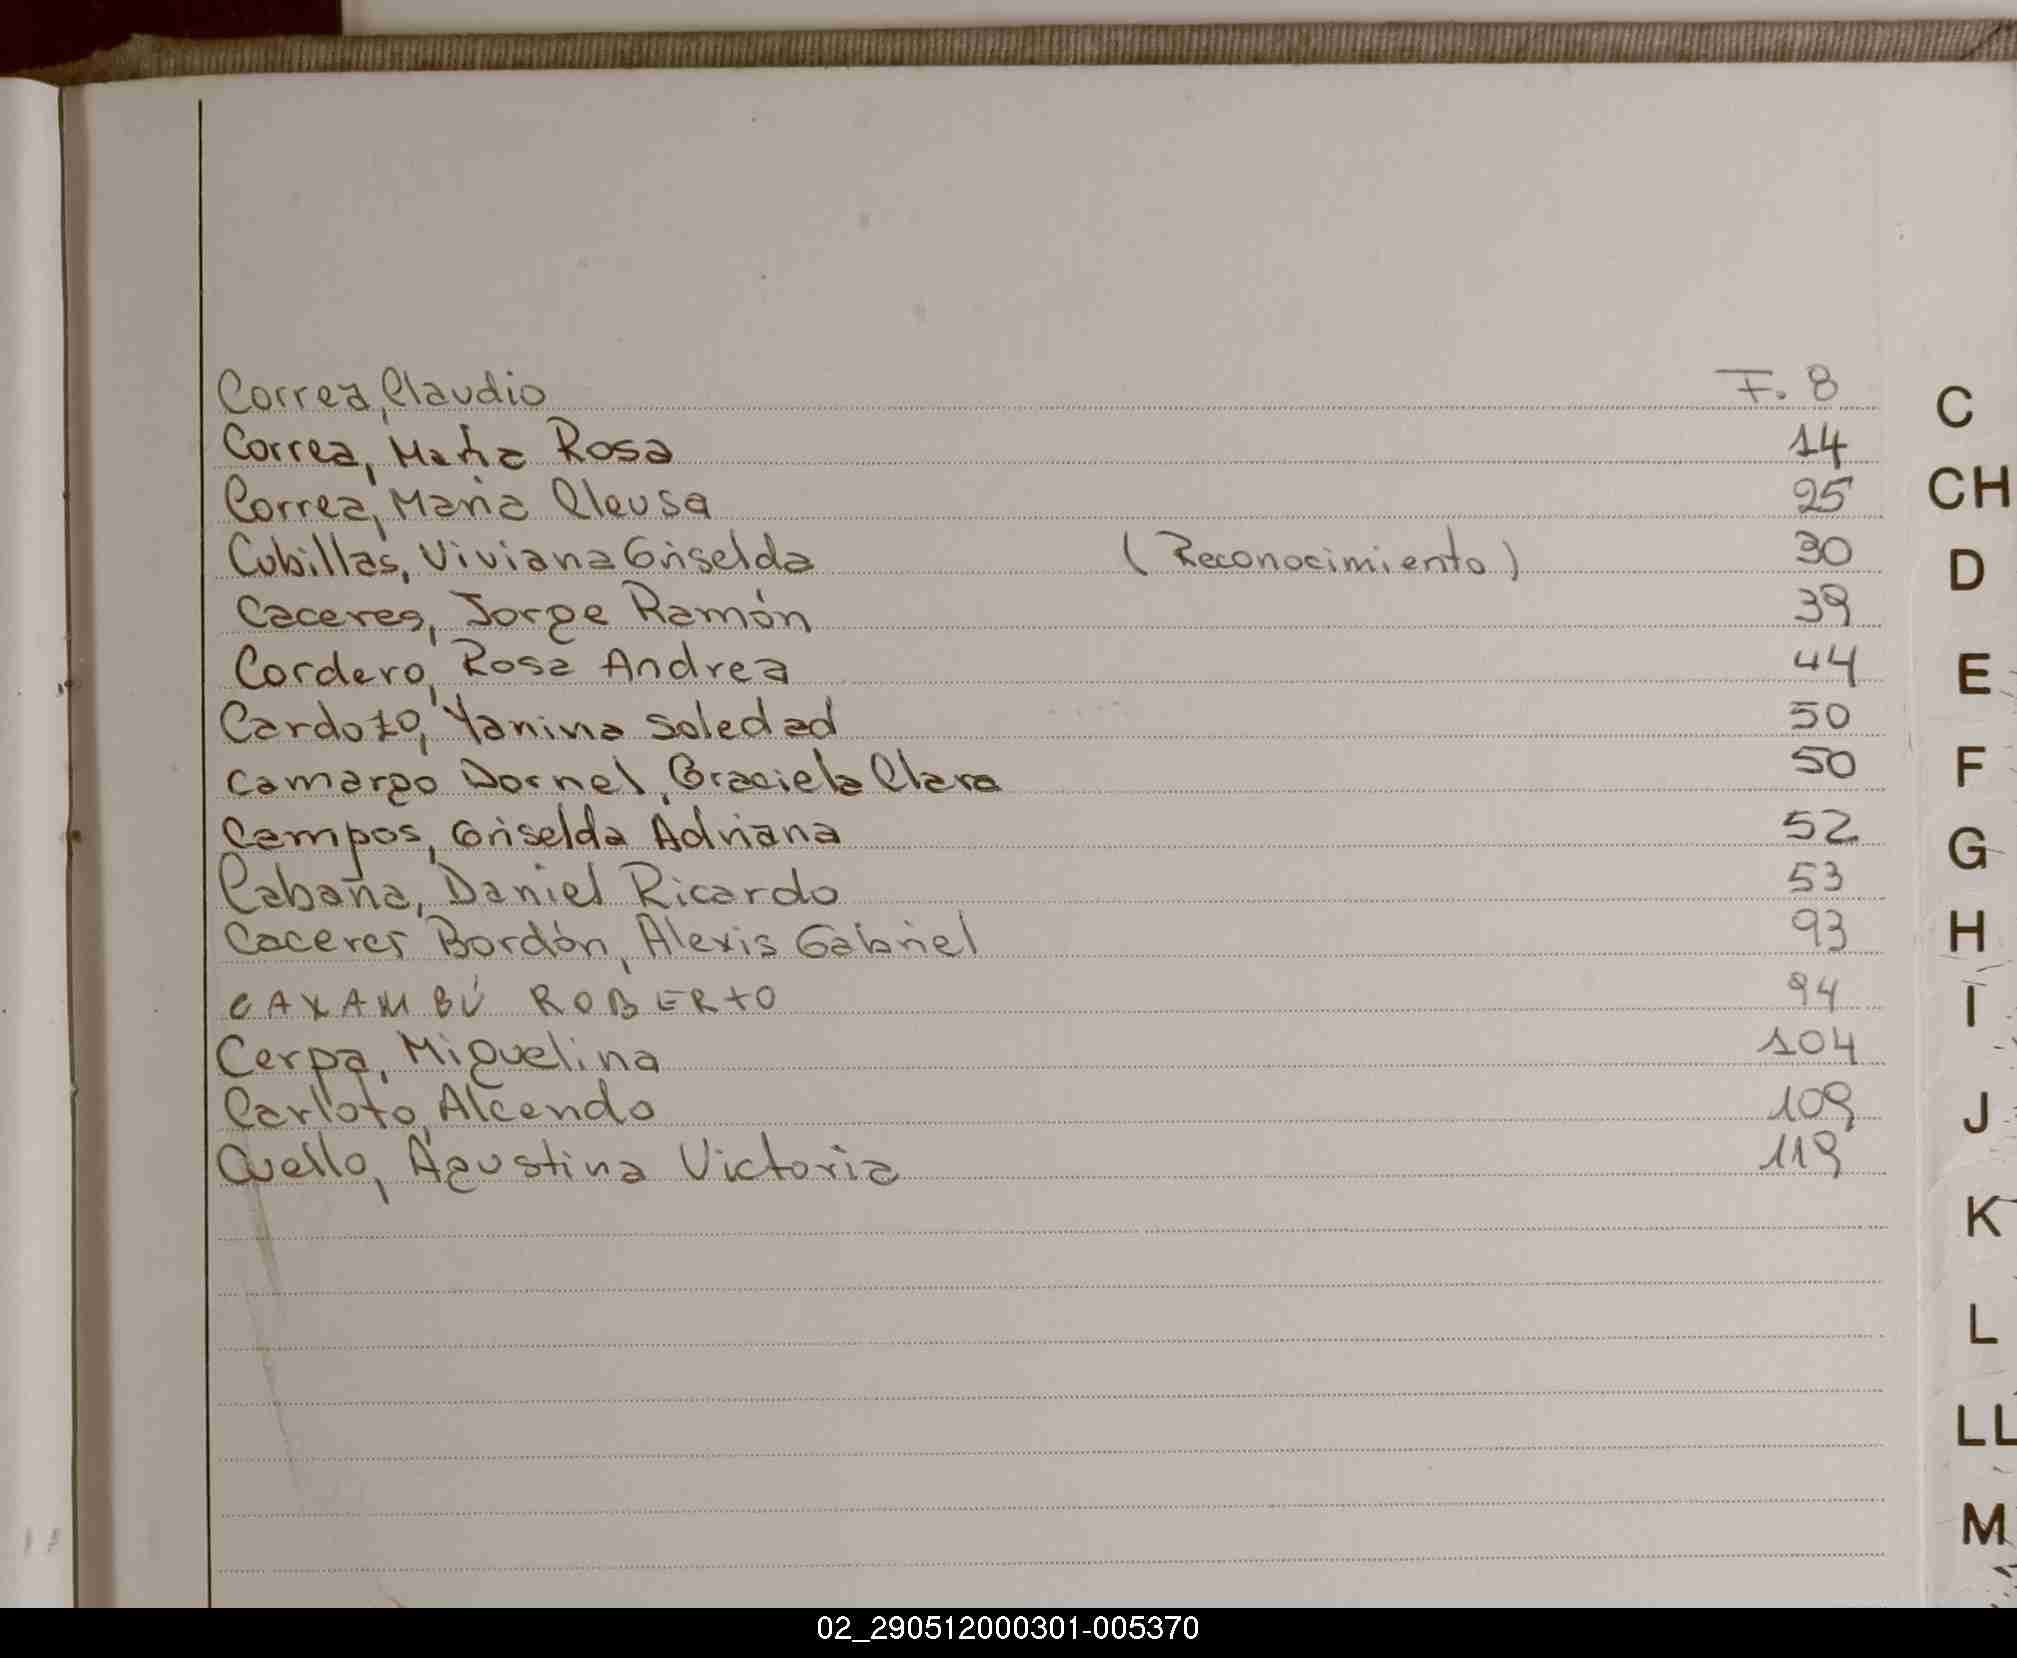 Correa, Claudio F. 8
Correa, María Rosa 14
Correa, Maria Cleusa 25
Cubillas, Viviana Griselda (Reconocimiento) 30
Caceres, Jorge Ramón 39
Cordero, Rosa Andrea 44
Cardozo, Yanina Soledad 50
Camargo Dornel, Graciela Clara 50
Campos, Griselda Adriana 52
Cabaña, Daniel Ricardo 53
Caceres Bordón, Alexis Gabriel 93
CAXAMBÚ ROBERTO 94
Cerpa, Miguelina 104
Carloto, Alcendo 109
Cuello, Agustina Victoria 119
C
CH
D
E
F
G
H
I
J
K
L
LL
M
02_290512000301-005370